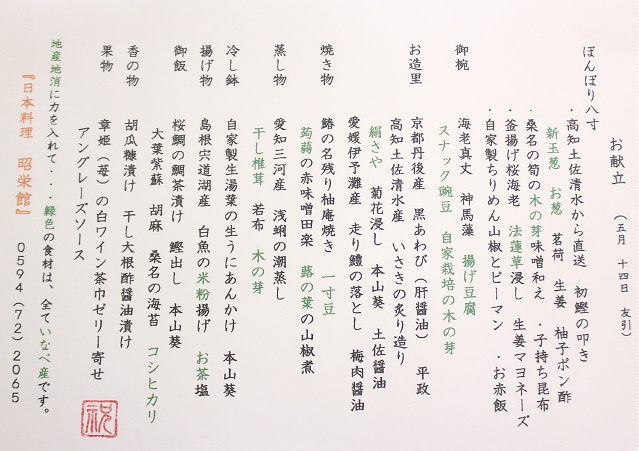 お献立　（五月　十四日　友引）
ぼんぼり八寸
・高知土佐清水から直送　初鰹の叩き
新玉葱　お葱　茗荷　生姜　柚子ポン酢
・桑名の筍の木の芽味噌和え　・子持ち昆布
・釜揚げ桜海老　法蓮草浸し　生姜マヨネーズ
・自家製ちりめん山椒とピーマン　・お赤飯
御椀　海老真丈　神馬藻　揚げ豆腐
スナック豌豆　自家栽培の木の芽
お造里　京都丹後産　黒あわび（肝醤油）　平政
高知土佐清水産　いさきの炙り造り
絹さや　菊花浸し　本山葵　土佐醤油
愛媛伊予灘産　走り鱧の落とし　梅肉醤油
焼き物　鰆の名残り柚庵焼き　一寸豆
蒟蒻の赤味噌田楽　蕗の葉の山椒煮
蒸し物　愛知三河産　浅蜊の潮蒸し
干し椎茸　若布　木の芽
冷し鉢　自家製生湯葉の生うにあんかけ　本山葵
揚げ物　島根宍道湖産　白魚の米粉揚げ　お茶塩
御飯　桜鯛の鯛茶漬け　鰹出し　本山葵
大葉紫蘇　胡麻　桑名の海苔　コシヒカリ
香の物　胡瓜糠漬け　干し大根酢醤油漬け
果物　章姫（苺）の白ワイン茶巾ゼリー寄せ
アングレーズソース
祝
地産地消に力を入れて・・・緑色の食材は、全ていなべ産です。
『日本料理　昭栄館』　0594（72）2065